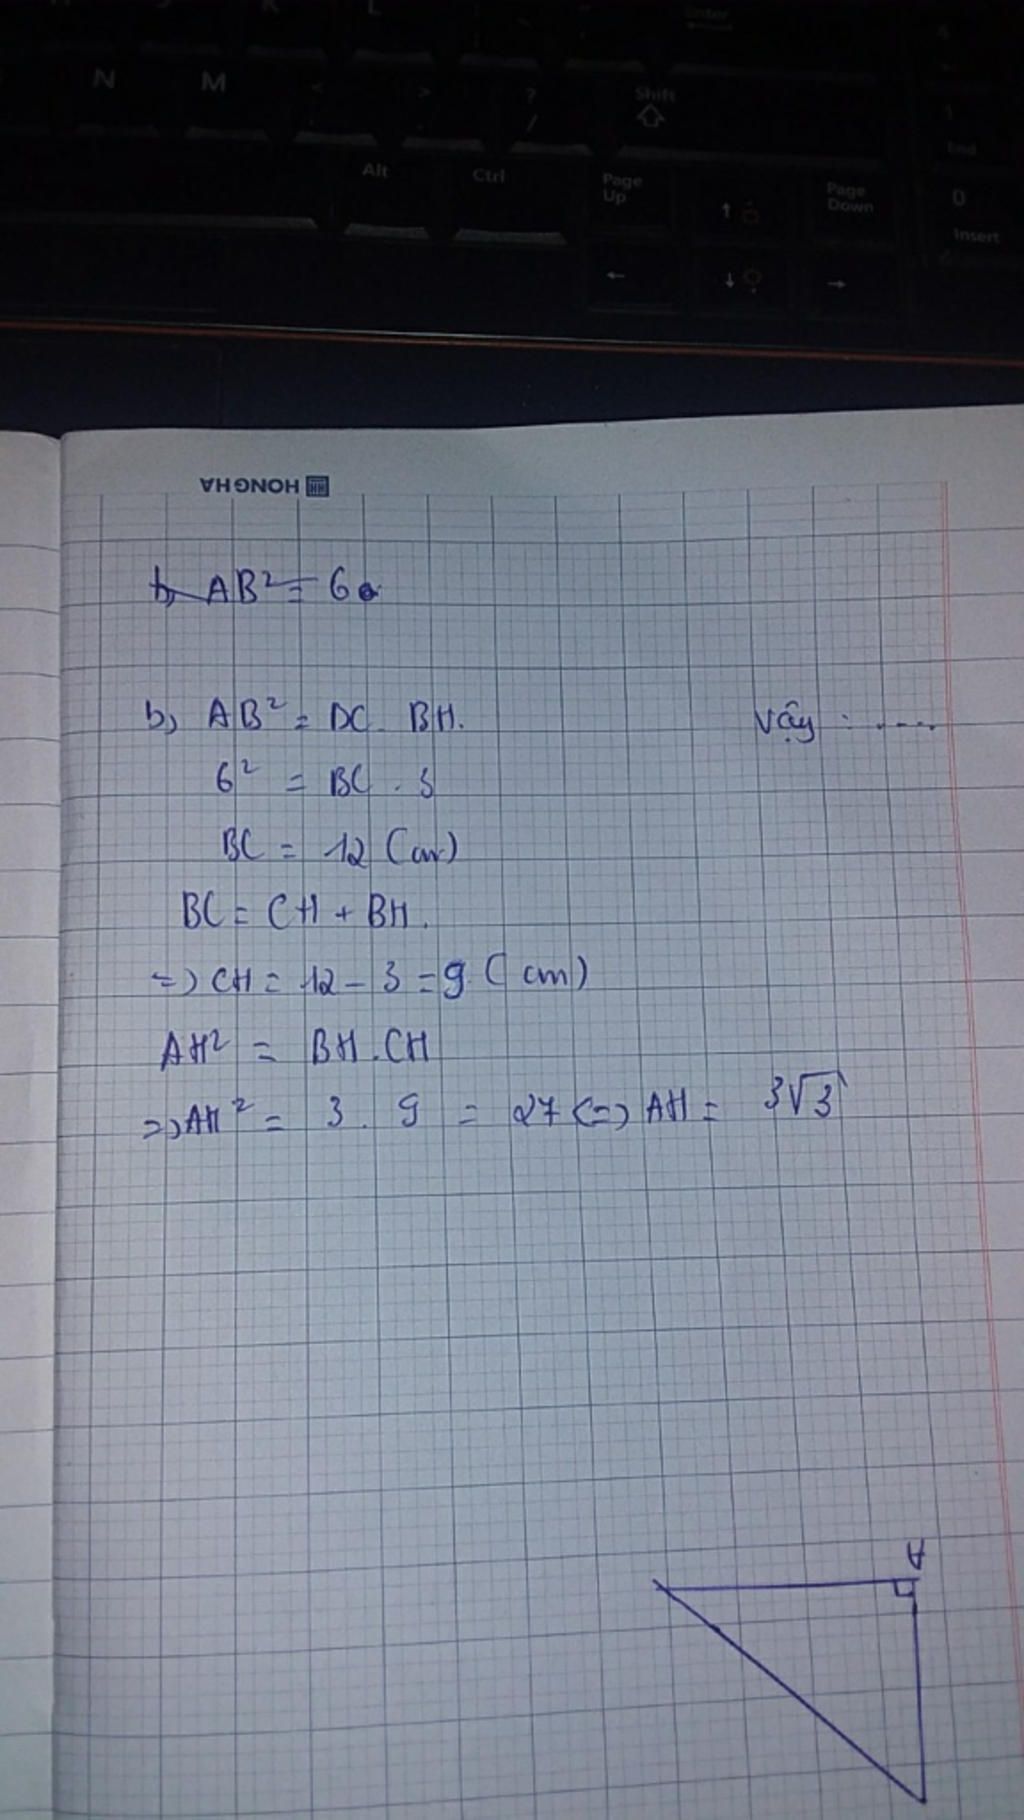 K
L
Enter
N
M
<
>
?
/
Shift
Alt
Ctrl
Page Up
Page Down
End
0
Insert
HONG HA
b, AB² = 6
b, AB² = DC . BH.
Vậy : ....
6² = BC . 3
BC = 12 (cm)
BC = CH + BH.
=> CH = 12 - 3 = 9 (cm)
AH² = BH . CH
=> AH² = 3 . 9 = 27 <=> AH = 3√3
A